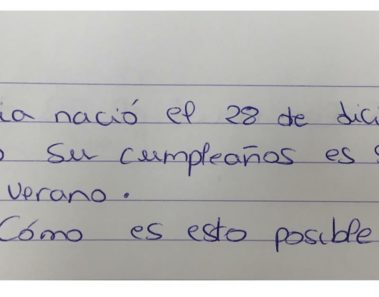 ia nació el 28 de dici
o su cumpleaños es s
verano.
Cómo es esto posible